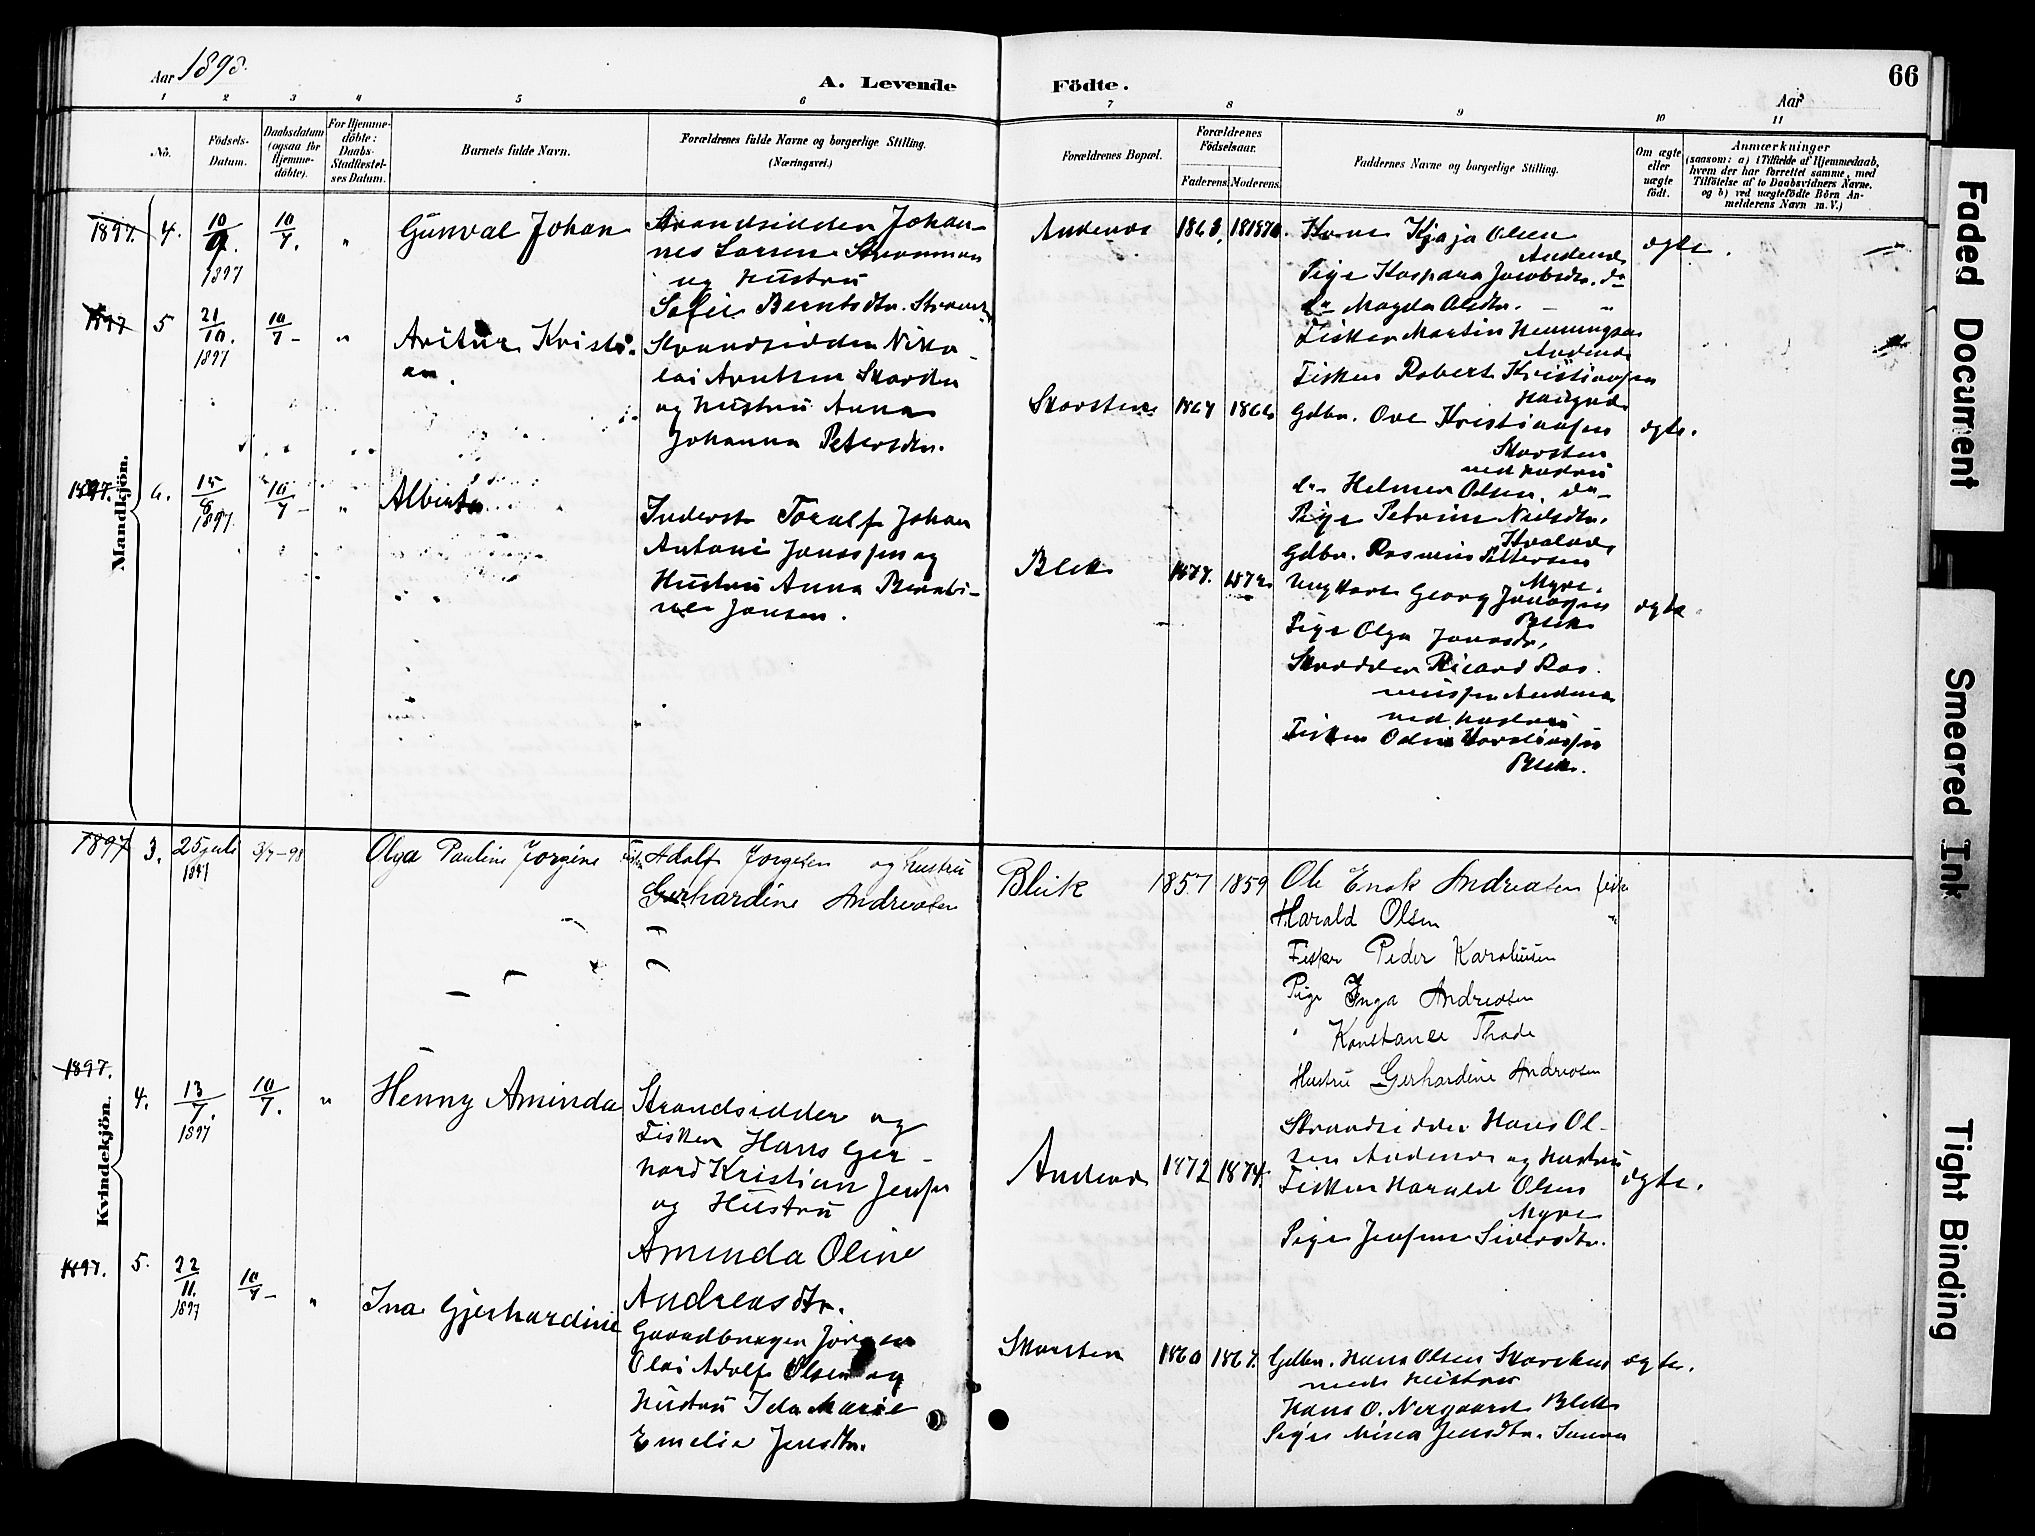 Aar 1898.
A. Levende Födte.
66
Aar
1 2 3 4 5 6 7 8 9 10 11
No.
Födsels-
Datum.
Daabsdatum
(ogsaa for
Hjemme-
döbte).
For Hjemme-
döbte:
Daabs-
Stadfæstel-
ses Datum.
Barnets fulde Navn.
Forældrenes fulde Navne og borgerlige Stilling.
(Næringsvei.)
Forældrenes Bopæl.
Forældrenes
Födselsaar.
Faderens. Moderens.
Faddernes Navne og borgerlige Stilling.
Om ægte
eller
uægte
født.
Anmærkninger
(saasom: a) i Tilfælde af Hjemmedaab,
hvem der har forrettet samme, med
Tilföielse af to Daabsvidners Navne.
og b) ved uægtefödte Börn An-
melderens Navn m. V.)
Mandkjön.
1897. 4. 10/9. 1897 10/7. " Gunval Johan
Strandsidder Johan-
nes Larsen Strømmen
og Hustru
Sofie Berntsdtr.
Andenes 1868.
Kone Kjaja Olsen
Andenes
Pige Kaspara Jacobsdtr. do
do Magda Olsdtr. - "
Fisker Martin Henningsen
Andenes
Fisker Robert Kristiansen
ægte.
1897 5 21/10. 1897 10/7 - " Artur Kristi-
an.
Strandsidder Niko-
lai Arntsen Skarsten
og Hustru Anna
Johanna Petersdtr.
Skarsten 1864 1866
Gdbr. Ove Kristiansen
Skarsten
med hustru
do Helmer Olsen. do
Pige Petrine Nielsdtr.
Gdbr. Rasmus Pettersen
Myre.
ægte.
1897. 6. 15/8 1897. 10/7 - " Alberta
Inderst Toralf Johan
Antoni Jonassen og
Hustru Anna Bernti-
ne Jansen.
Bleik 1877. 1872
Ungkarl Georg Jonassen
Bleik
Pige Olga Jonasdtr.
Skrædder Ricard Ras-
mussen Andenes
med hustru
Fisker Odin Karoliussen
Bleik.
ægte
Kvindekjön.
1897 3. 25 juli 1897 3/7-98 Olga Pauline Jorgine
Fisker Adolf Jorgesen og hustru
Gerhardine Andreasen
Bleik 1857 1859
Ole Enok Andreasen fisker
Harald Olsen "
Fisker Peder Karoliusen
Pige Inga Andreasen
" Konstance Thode
Hustru Gerhardine Andreasen
1897. 4. 13/7. 1897 10/7. " Henny Aminda
Strandsidder og
Fisker Hans Ger-
hard Kristian Jensen
og Hustru
Aminda Oline
Andreasdtr.
Andenes 1872 1874.
Strandsidder Hans Ol-
sen Andenes og Hustru
Fisker Harald Olsen
Myre
Pige Jensine Siversdtr.
ægte.
1897. 5. 22/11. 1897 10/7 - " Ina Gjerhardine
Gaardbruger Jörgen
Olai Adolf Olsen og
Hustru Ida Marie
Emelie Jensdtr.
Skarsten 1860 1867.
Gdbr. Hans Olsen Skarsten
med Hustru
Hans O. Nergaard Bleik
Pige Nina Jensdtr.
ægte.
Faded Document
Smeared Ink
Tight Binding